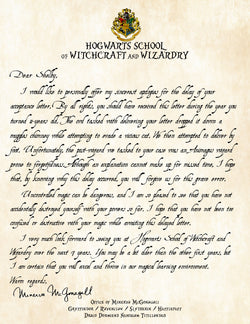 HOGWARTS SCHOOL
OF WITCHCRAFT AND WIZARDRY
Dear Shelby,
I would like to personally offer my sincerest apologies for the delay of your
acceptance letter. By all rights, you should have received this letter during the year you
turned 11-years old. The owl tasked with delivering your letter dropped it down a
muggles chimney while attempting to evade a vicious cat. We then attempted to deliver by
foot. Unfortunately, the post-wizard we tasked to your case was an Auror
prone to forgetfulness. Although an explanation cannot make up for missed time, I hope
that, by knowing why this delay occurred, you will forgive us for this grave error.
Uncontrolled magic can be dangerous, and I am so pleased to see that you have not
accidentally destroyed yourself with your powers so far. I hope that you have not been too
confused or destructive with your magic while awaiting this delayed letter.
I very much look forward to seeing you at Hogwarts School of Witchcraft and
Wizardry over the next 7 years. You may be a bit older than the other first years, but
I am certain that you will excel and thrive in our magical learning environment.
Warm regards,
Minerva McGonagall
OFFICE OF MINERVA MCGONAGALL
GRYFFINDOR / RAVENCLAW / SLYTHERIN / HUFFLEPUFF
DRACO DORMIENS NUNQUAM TITILLANDUS